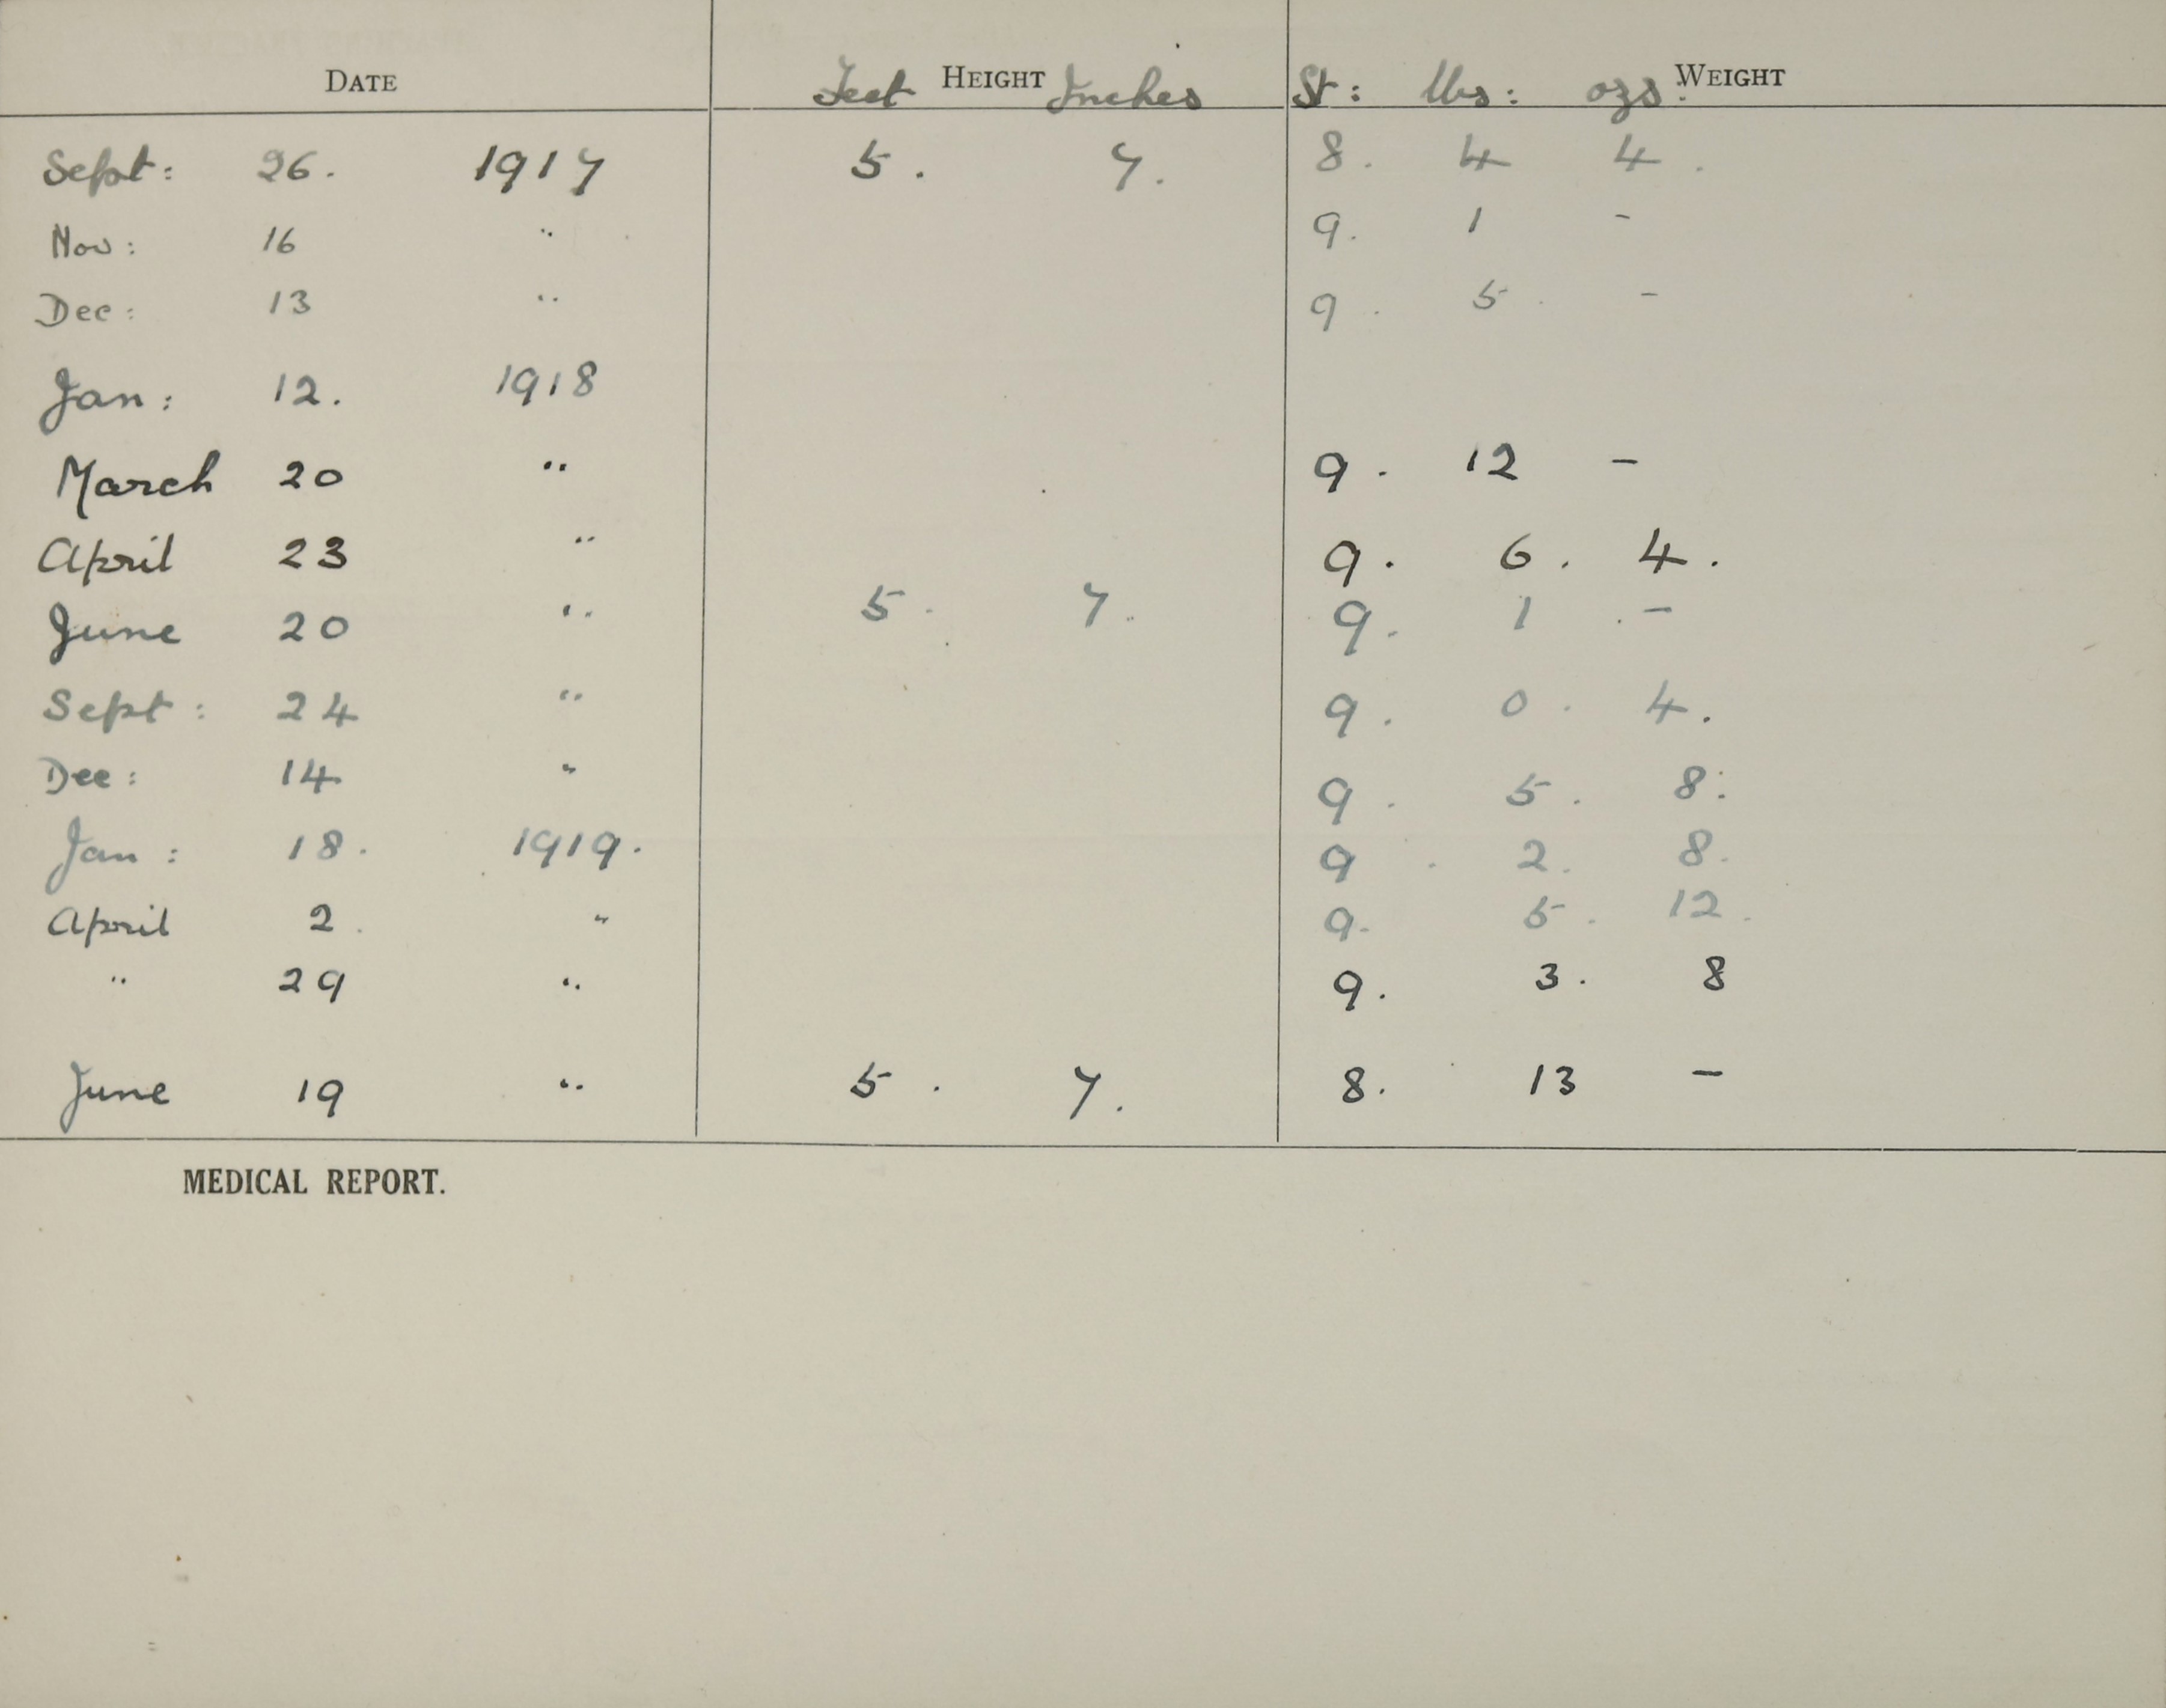 DATE Feet HEIGHT Inches St: lbs: ozs. WEIGHT
Sept: 26. 1917 5. 7. 8. 4 4.
Nov: 16 " 9. 1 -
Dec: 13 " 9. 5. -
Jan: 12. 1918
March 20 " 9. 12 -
April 23 " 9. 6. 4.
June 20 " 5. 7. 9. 1. -
Sept: 24 " 9. 0. 4.
Dec: 14 " 9. 5. 8:
Jan: 18. 1919. 9. 2. 8.
April 2. " 9. 5. 12.
" 29 " 9. 3. 8
June 19 " 5. 7. 8. 13 -
MEDICAL REPORT.